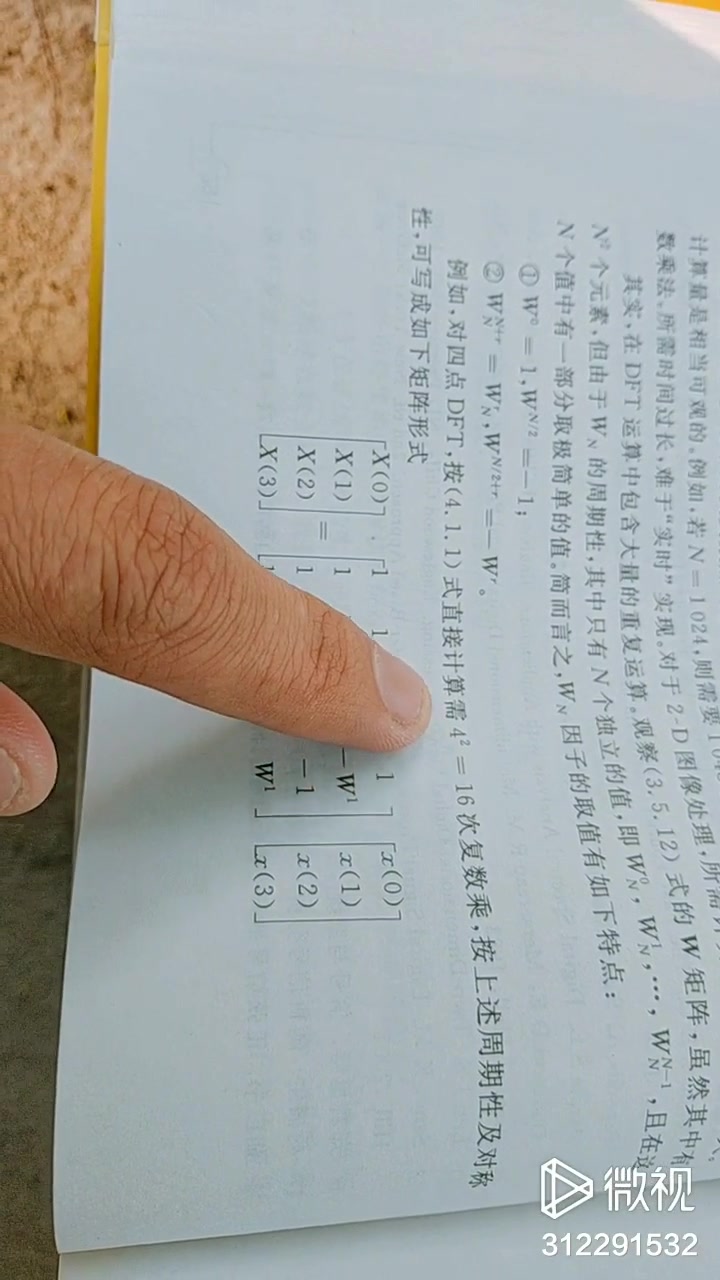 计算量是相当可观的。例如,若 N=1024,则需要
数乘法,所需时间过长,难于“实时”实现。对于 2-D 图像处理,所需
其实,在 DFT 运算中包含大量的重复运算。观察(3.5.12)式的 W 矩阵,虽然其中有
N² 个元素,但由于 W_N 的周期性,其中只有 N 个独立的值,即 W_N^0, W_N^1, …, W_N^{N-1},且在这
N 个值中有一部分取极简单的值。简而言之,W_N 因子的取值有如下特点:
① W^0 = 1, W^{N/2} = -1;
② W_N^{N+r} = W_N^r, W^{N/2+r} = -W^r。
例如,对四点 DFT,按(4.1.1)式直接计算需 4² = 16 次复数乘,按上述周期性及对称
性,可写成如下矩阵形式
X(0) 1 1 1 x(0)
X(1) = 1 -W^1 x(1)
X(2) 1 -1 x(2)
X(3) W^1 x(3)
微视
312291532